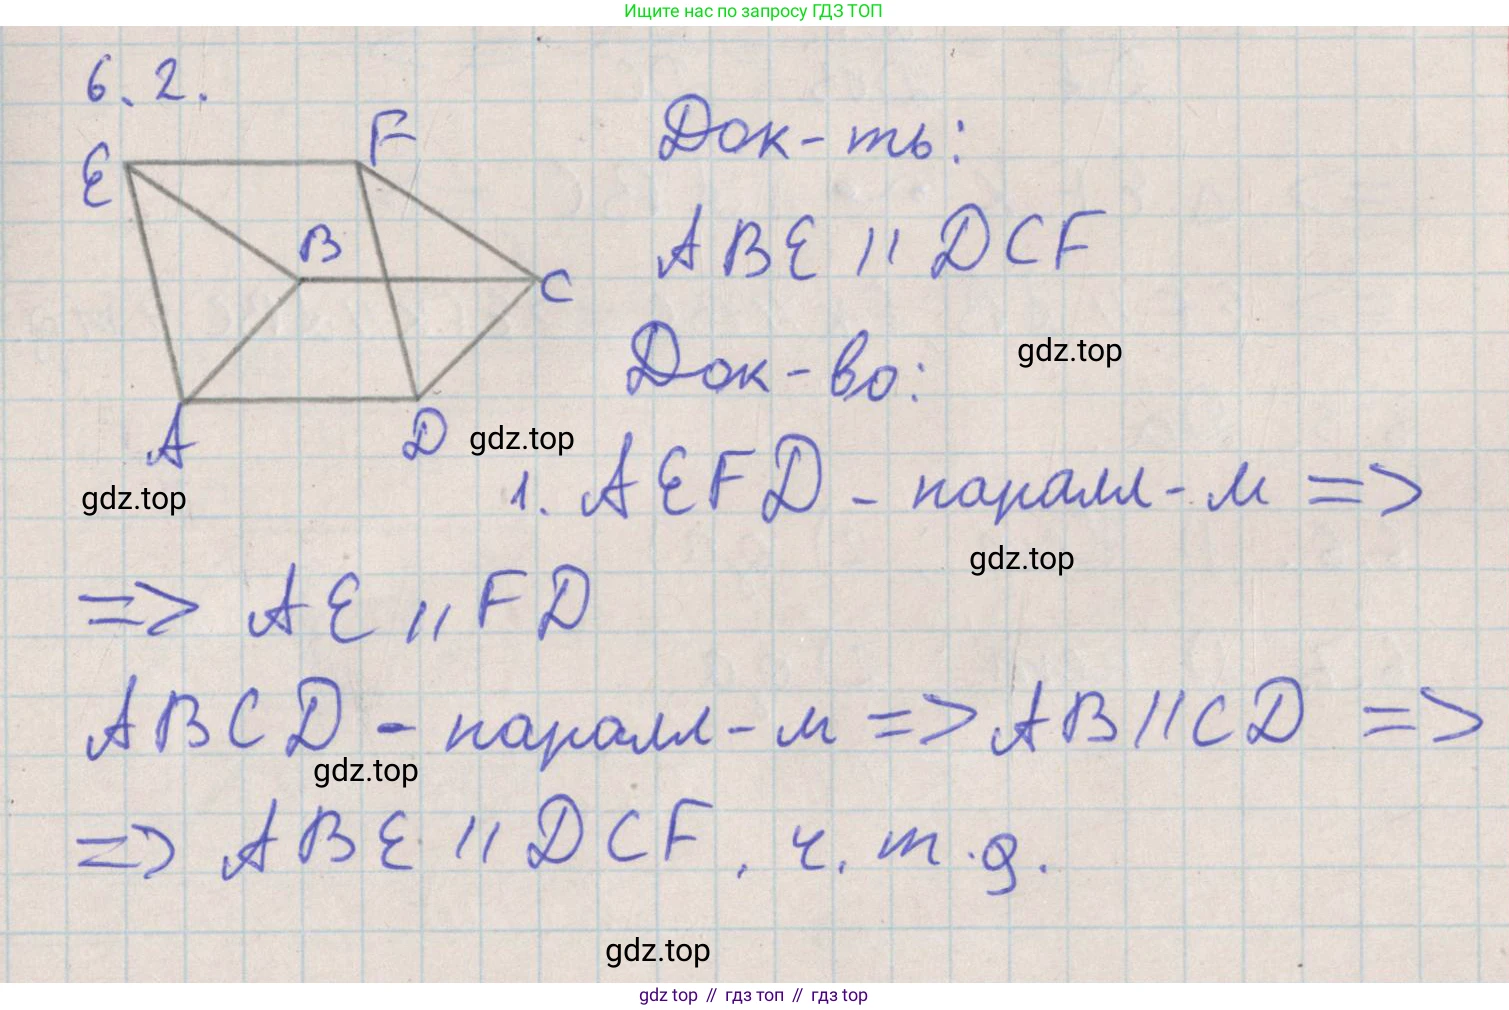 Ищите нас по запросу ГДЗ ТОП
6.2.
E
F
B
C
A
D
Док-ть:
ABE || DCF
Док-во:
gdz.top
gdz.top
gdz.top
1. AEFD - паралл-м =>
gdz.top
=> AE || FD
ABCD - паралл-м => AB || CD =>
gdz.top
=> ABE || DCF, ч.т.д.
gdz.top
gdz top // гдз топ // гдз top